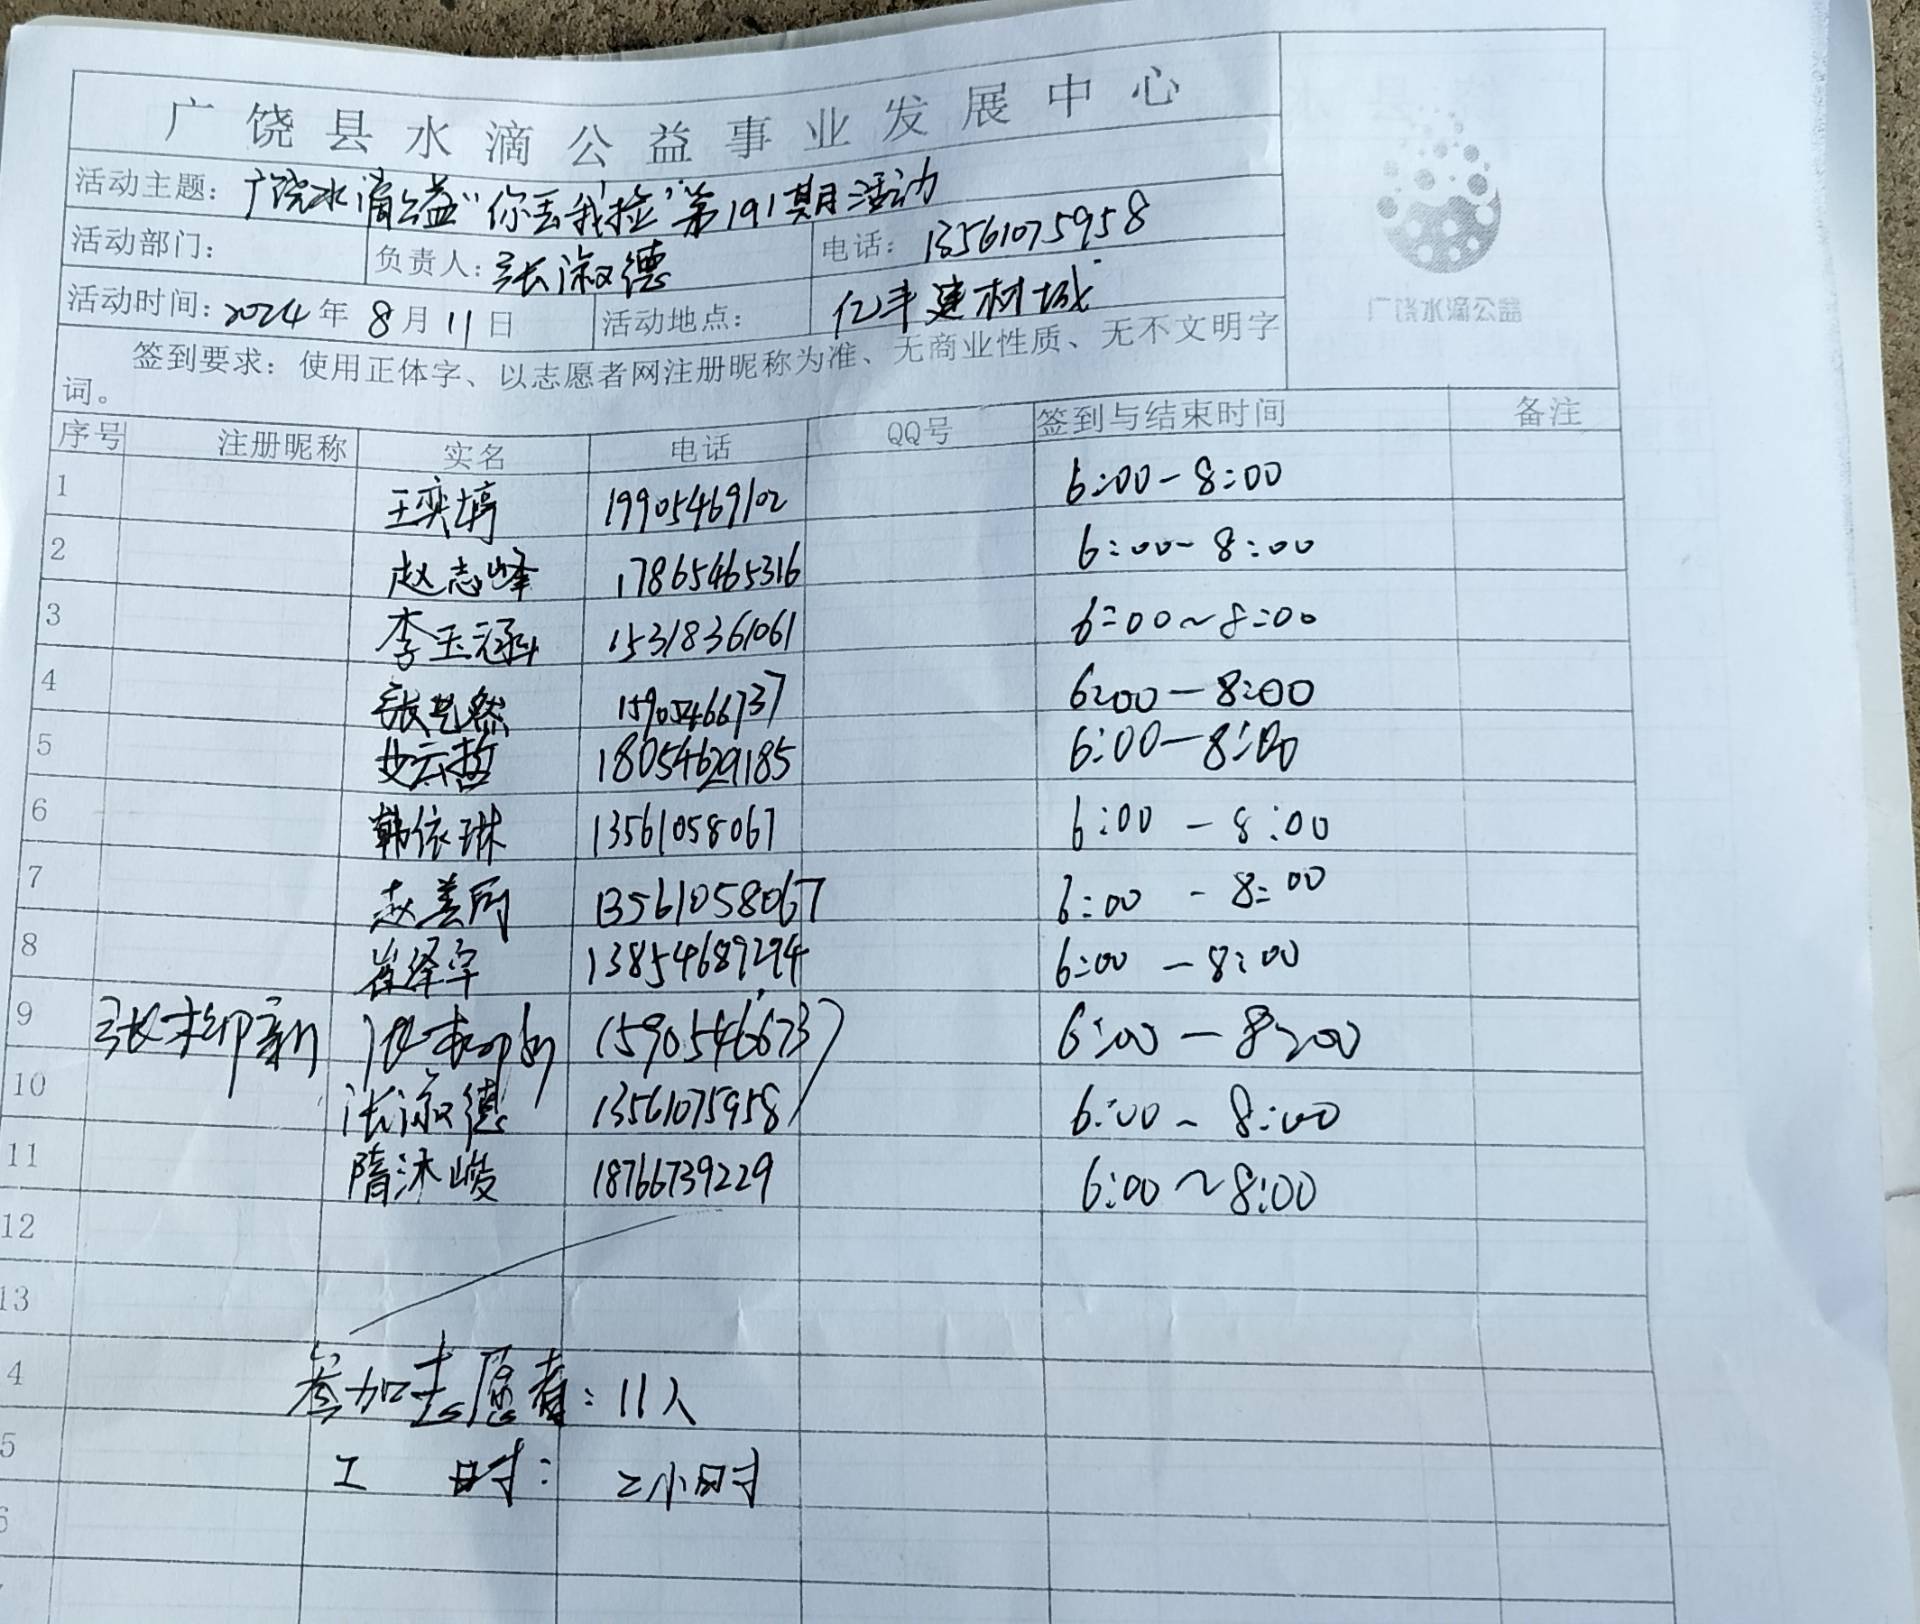 广饶县水滴公益事业发展中心
活动主题：广饶水滴公益“你丢我捡”第191期活动
活动部门： 负责人：张淑德 电话：13561075958
活动时间：2024年8月11日 活动地点：亿丰建材城
广饶水滴公益
签到要求：使用正体字、以志愿者网注册昵称为准、无商业性质、无不文明字
词。
序号 注册昵称 实名 电话 QQ号 签到与结束时间 备注
1 王奕婷 19905469102 6:00-8:00
2 赵志峰 17865465316 6:00-8:00
3 李玉涵 15318361061 6:00~8:00
4 张艺然 15905466737 6:00-8:00
5 云哲 18054629185 6:00-8:00
6 韩依琳 13561058067 6:00-8:00
7 赵美 13561058067 6:00-8:00
8 崔泽宇 13854689294 6:00-8:00
9 张 新 张 15905466737 6:00-8:00
10 张淑德 13561075958 6:00-8:00
11 隋沐峻 18766739229 6:00~8:00
12
13
4 参加志愿者：11人
5 工时：2小时
6